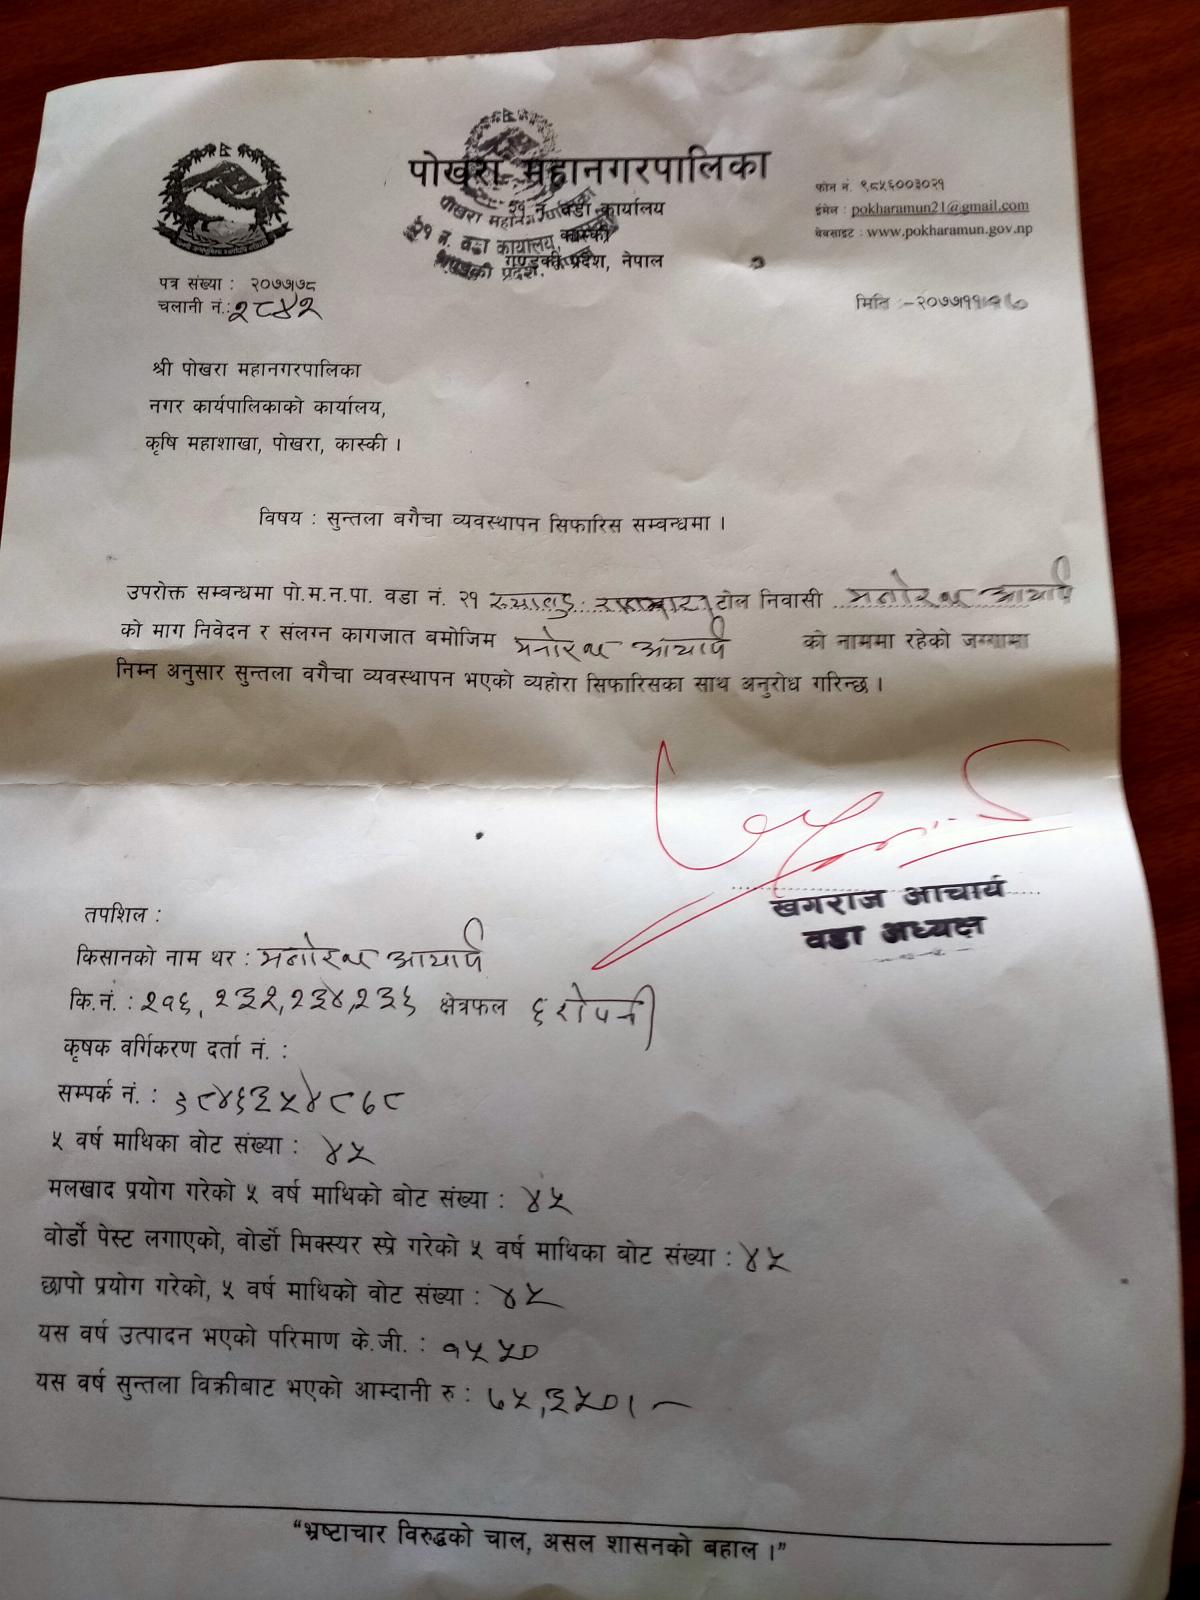 पोखरा महानगरपालिका
२१ नं. वडा कार्यालय
कास्की
गण्डकी प्रदेश, नेपाल
फोन नं. ९८५६००३०२१
इमेल : pokharamun21@gmail.com
वेबसाइट : www.pokharamun.gov.np
पत्र संख्या : २०७७।७८
चलानी नं.: २८४२
मिति :-२०७७।११।
श्री पोखरा महानगरपालिका
नगर कार्यपालिकाको कार्यालय,
कृषि महाशाखा, पोखरा, कास्की ।
विषय : सुन्तला बगैचा व्यवस्थापन सिफारिस सम्बन्धमा ।
उपरोक्त सम्बन्धमा पो.म.न.पा. वडा नं. २१ टोल निवासी मनोरथ आचार्य
को माग निवेदन र संलग्न कागजात बमोजिम मनोरथ आचार्य को नाममा रहेको जग्गामा
निम्न अनुसार सुन्तला वगैचा व्यवस्थापन भएको व्यहोरा सिफारिसका साथ अनुरोध गरिन्छ ।
खगराज आचार्य
वडा अध्यक्ष
तपशिल :
किसानको नाम थर : मनोरथ आचार्य
कि.नं. : २१६, २३२, २३४, २३६ क्षेत्रफल ६ रोपनी
कृषक वर्गिकरण दर्ता नं. :
सम्पर्क नं. : ९८४६३५४८७८
५ वर्ष माथिका वोट संख्या : ४५
मलखाद प्रयोग गरेको ५ वर्ष माथिको बोट संख्या : ४५
वोर्डो पेस्ट लगाएको, वोर्डो मिक्स्यर स्प्रे गरेको ५ वर्ष माथिका बोट संख्या : ४५
छापो प्रयोग गरेको, ५ वर्ष माथिको वोट संख्या : ४५
यस वर्ष उत्पादन भएको परिमाण के.जी. : १५५०
यस वर्ष सुन्तला विक्रीबाट भएको आम्दानी रु : ७५,३५०।-
“भ्रष्टाचार विरुद्धको चाल, असल शासनको बहाल ।”